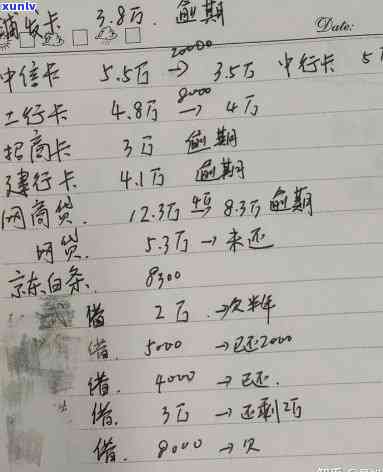 xunlv
浦发卡 3.8万. 逾期
Date:
中信卡 5.5万 20000→ 3.5万 中行卡 5
工行卡 4.8万 8000→ 4万
招商卡 3万 逾期
建行卡 4.1万 逾期
网商贷. 12.3万 → 8.3万 逾期
网贷. 5.3万 → 未还
京东白条. 8300
借 2万 →欠半年
借. 5000 →已还2000
借. 4000 →已还.
借. 3万 →还剩2万
借. 8000 →欠
知乎